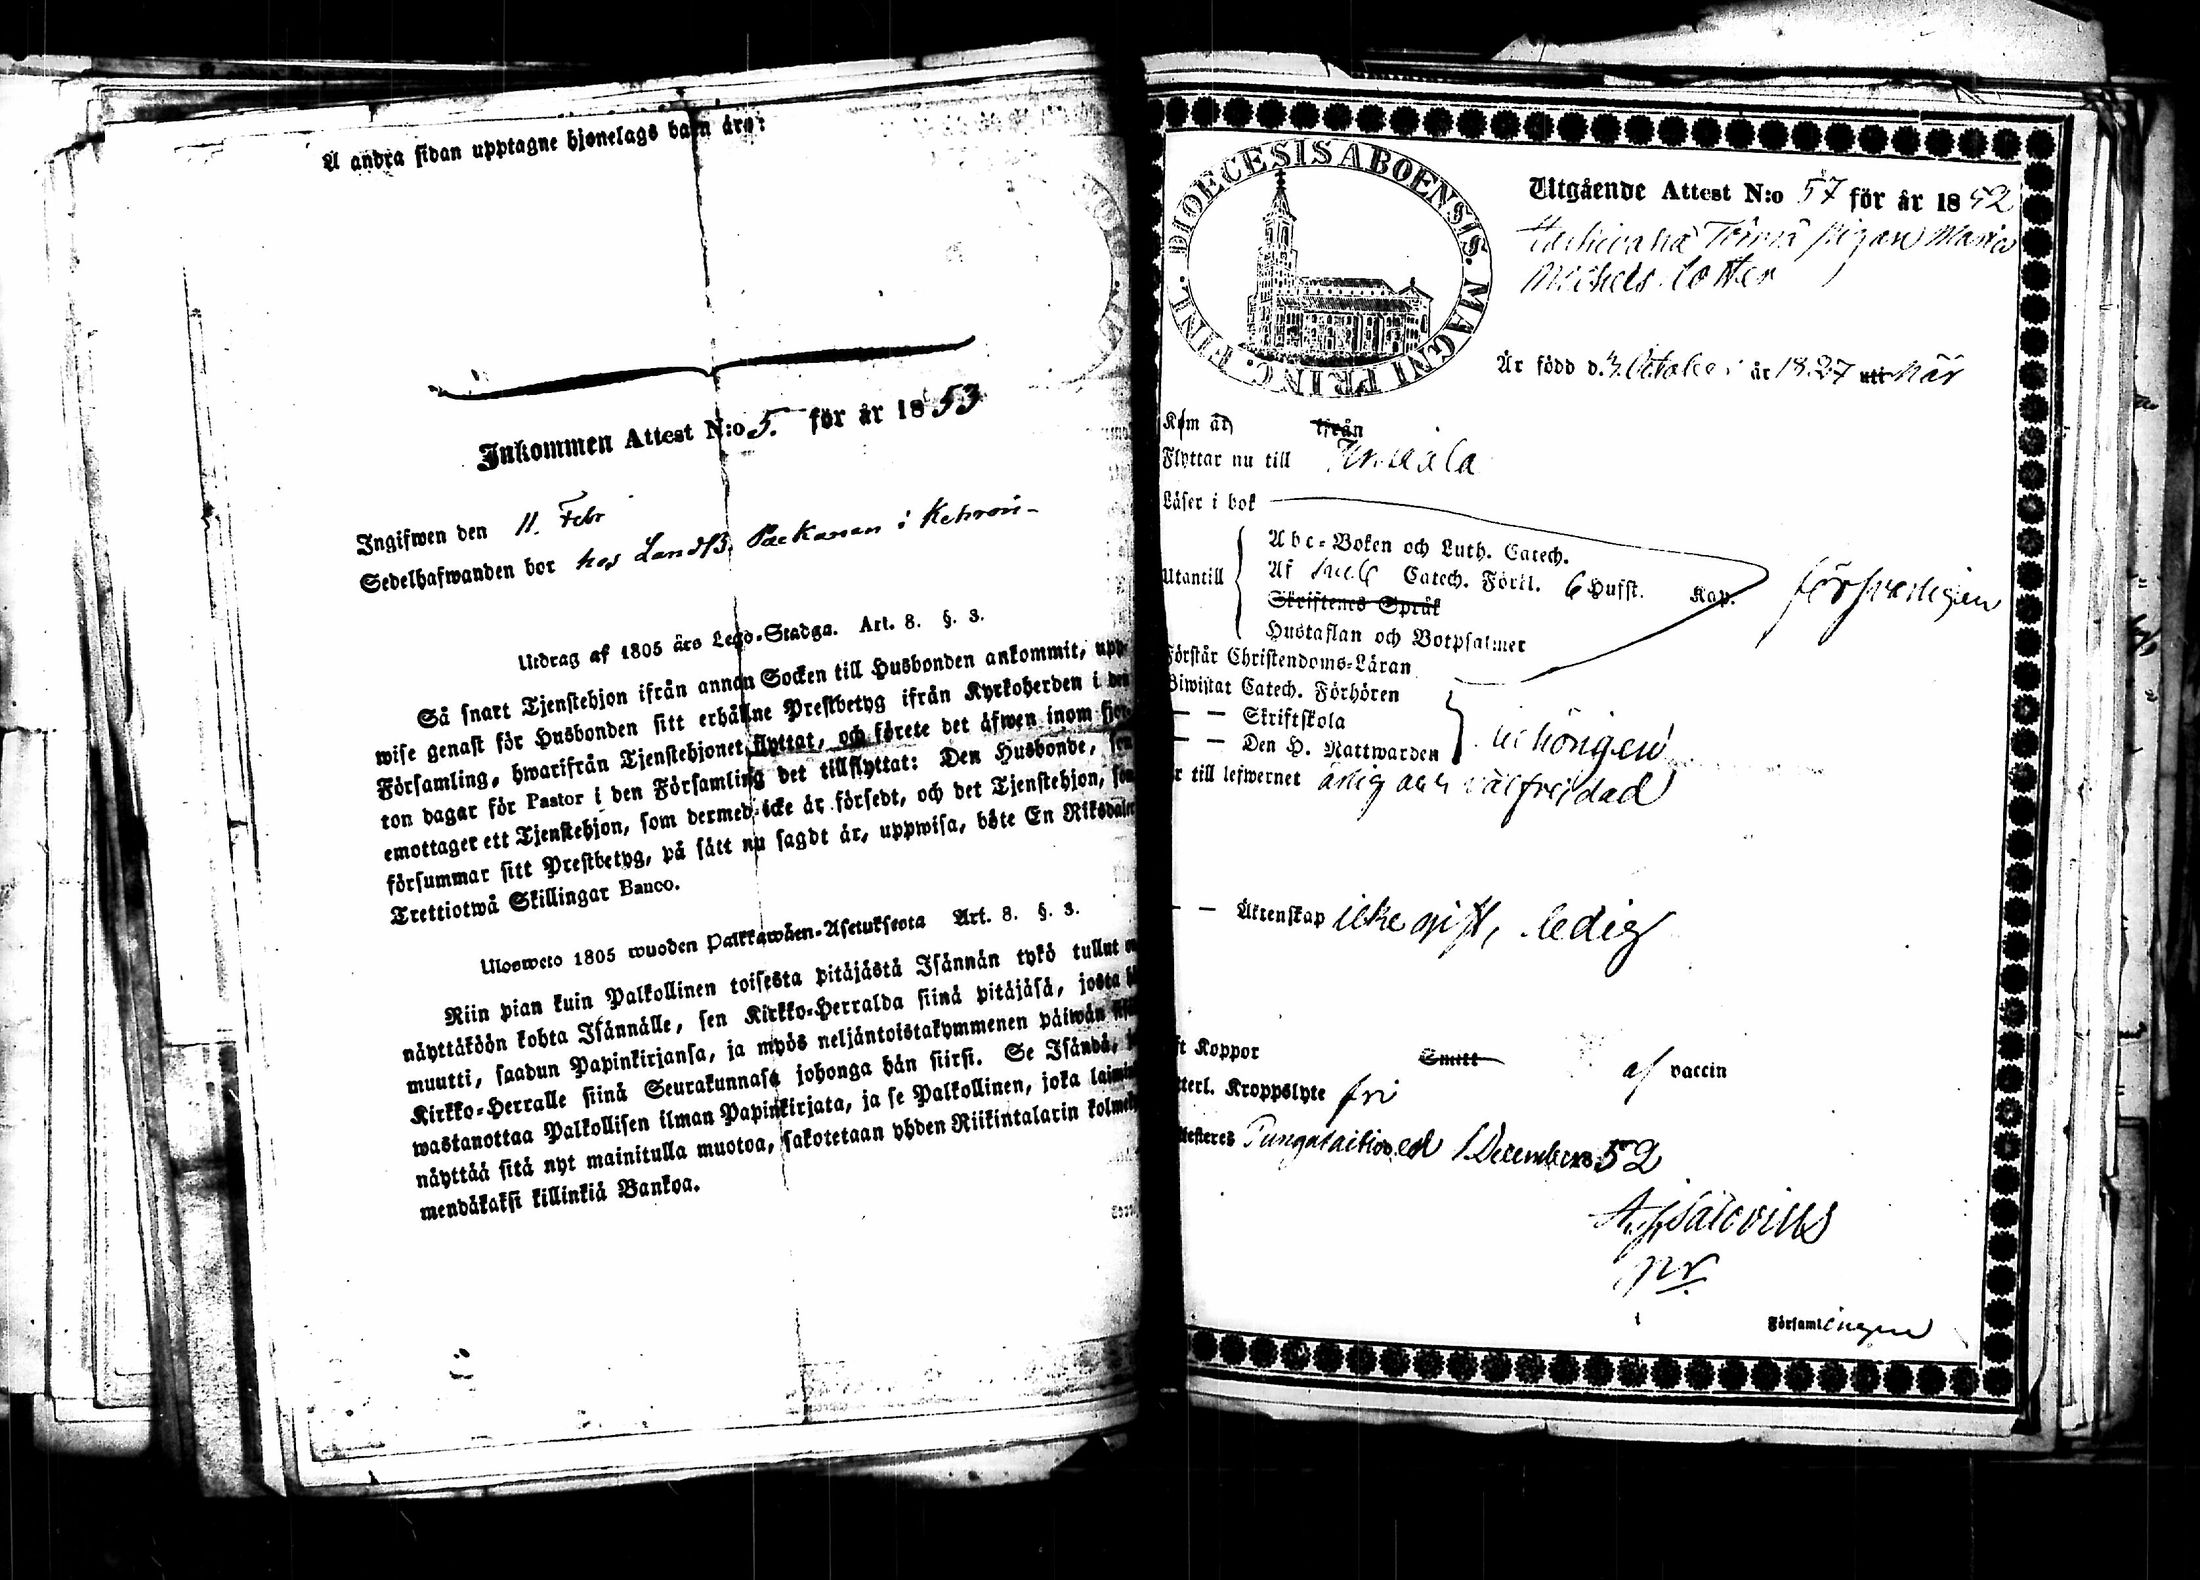 Å andra sidan upptagne hjonelags barn äro:
Inkommen Attest N:o 5. för år 1853
Ingifwen den 11. Febr
Sedelhafwanden bor hos Landtb. Packanen i Kehron-
Utdrag af 1805 års Lego-Stadga. Art. 8. §. 3.
Så snart Tjenstehjon ifrån annan Socken till Husbonden ankommit, upp-
wise genast för Husbonden sitt erhållne Prestbetyg ifrån Kyrkoherden i den
Församling, hwarifrån Tjenstehjonet flyttat, och förete det äfwen inom fjor-
ton dagar för Pastor i den Församling det tillflyttat: Den Husbonde, som
emottager ett Tjenstehjon, som dermed icke är försedt, och det Tjenstehjon, som
försummar sitt Prestbetyg, på sätt nu sagdt är, uppwisa, böte En Riksdaler
Trettiotwå Skillingar Banco.
Ulosweto 1805 wuoden Palkkawäen-Asetuksesta Art. 8. §. 3.
Niin pian kuin Palkollinen toisesta pitäjästä Isännän tykö tullut
näyttäköön kohta Isännälle, sen Kirkko-Herralda siinä pitäjäsä, josta
muutti, saadun Papinkirjansa, ja myös neljäntoistakymmenen päiwän
Kirkko-Herralle siinä Seurakunnasa johonga hän siirsi. Se Isändä,
wastanottaa Palkollisen ilman Papinkirjata, ja se Palkollinen, joka
näyttää sitä nyt mainitulla muotoa, sakotetaan yhden Riikintalarin kolme
mendäkaksi killinkiä Bankoa.
DIOECESIS ABOENSIS. MAGNI PRINC. FINL.
Utgående Attest N:o 57 för år 1852
pigan Maria
Michels dotter
Är född d. 3 October år 1827 uti här
Kom år ifrån
Flyttar nu till
Läser i bok
Abc-Boken och Luth. Catech.
Utantill Af Catech. Förkl. 6 Hufst. Kap. försvarligen
Skriftenes Språk
Hustaflan och Botpsalmer
Förstår Christendoms-Läran
Biwistat Catech. Förhören
— — Skriftskola
— — Den H. Nattwarden behörigen
r till lefwernet ärlig och välfrejdad
— — Äktenskap icke gift, ledig
ft Koppor Smitt af vaccin
tterl. Kroppslyte fri
ttesteres Pungalaitio d 1 December 52
pr
i Församlingen